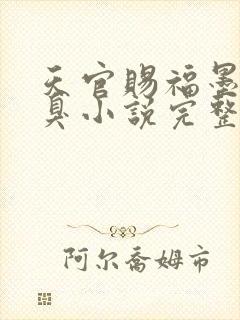 天官赐福墨
真小说完整
阿尔乔姆市